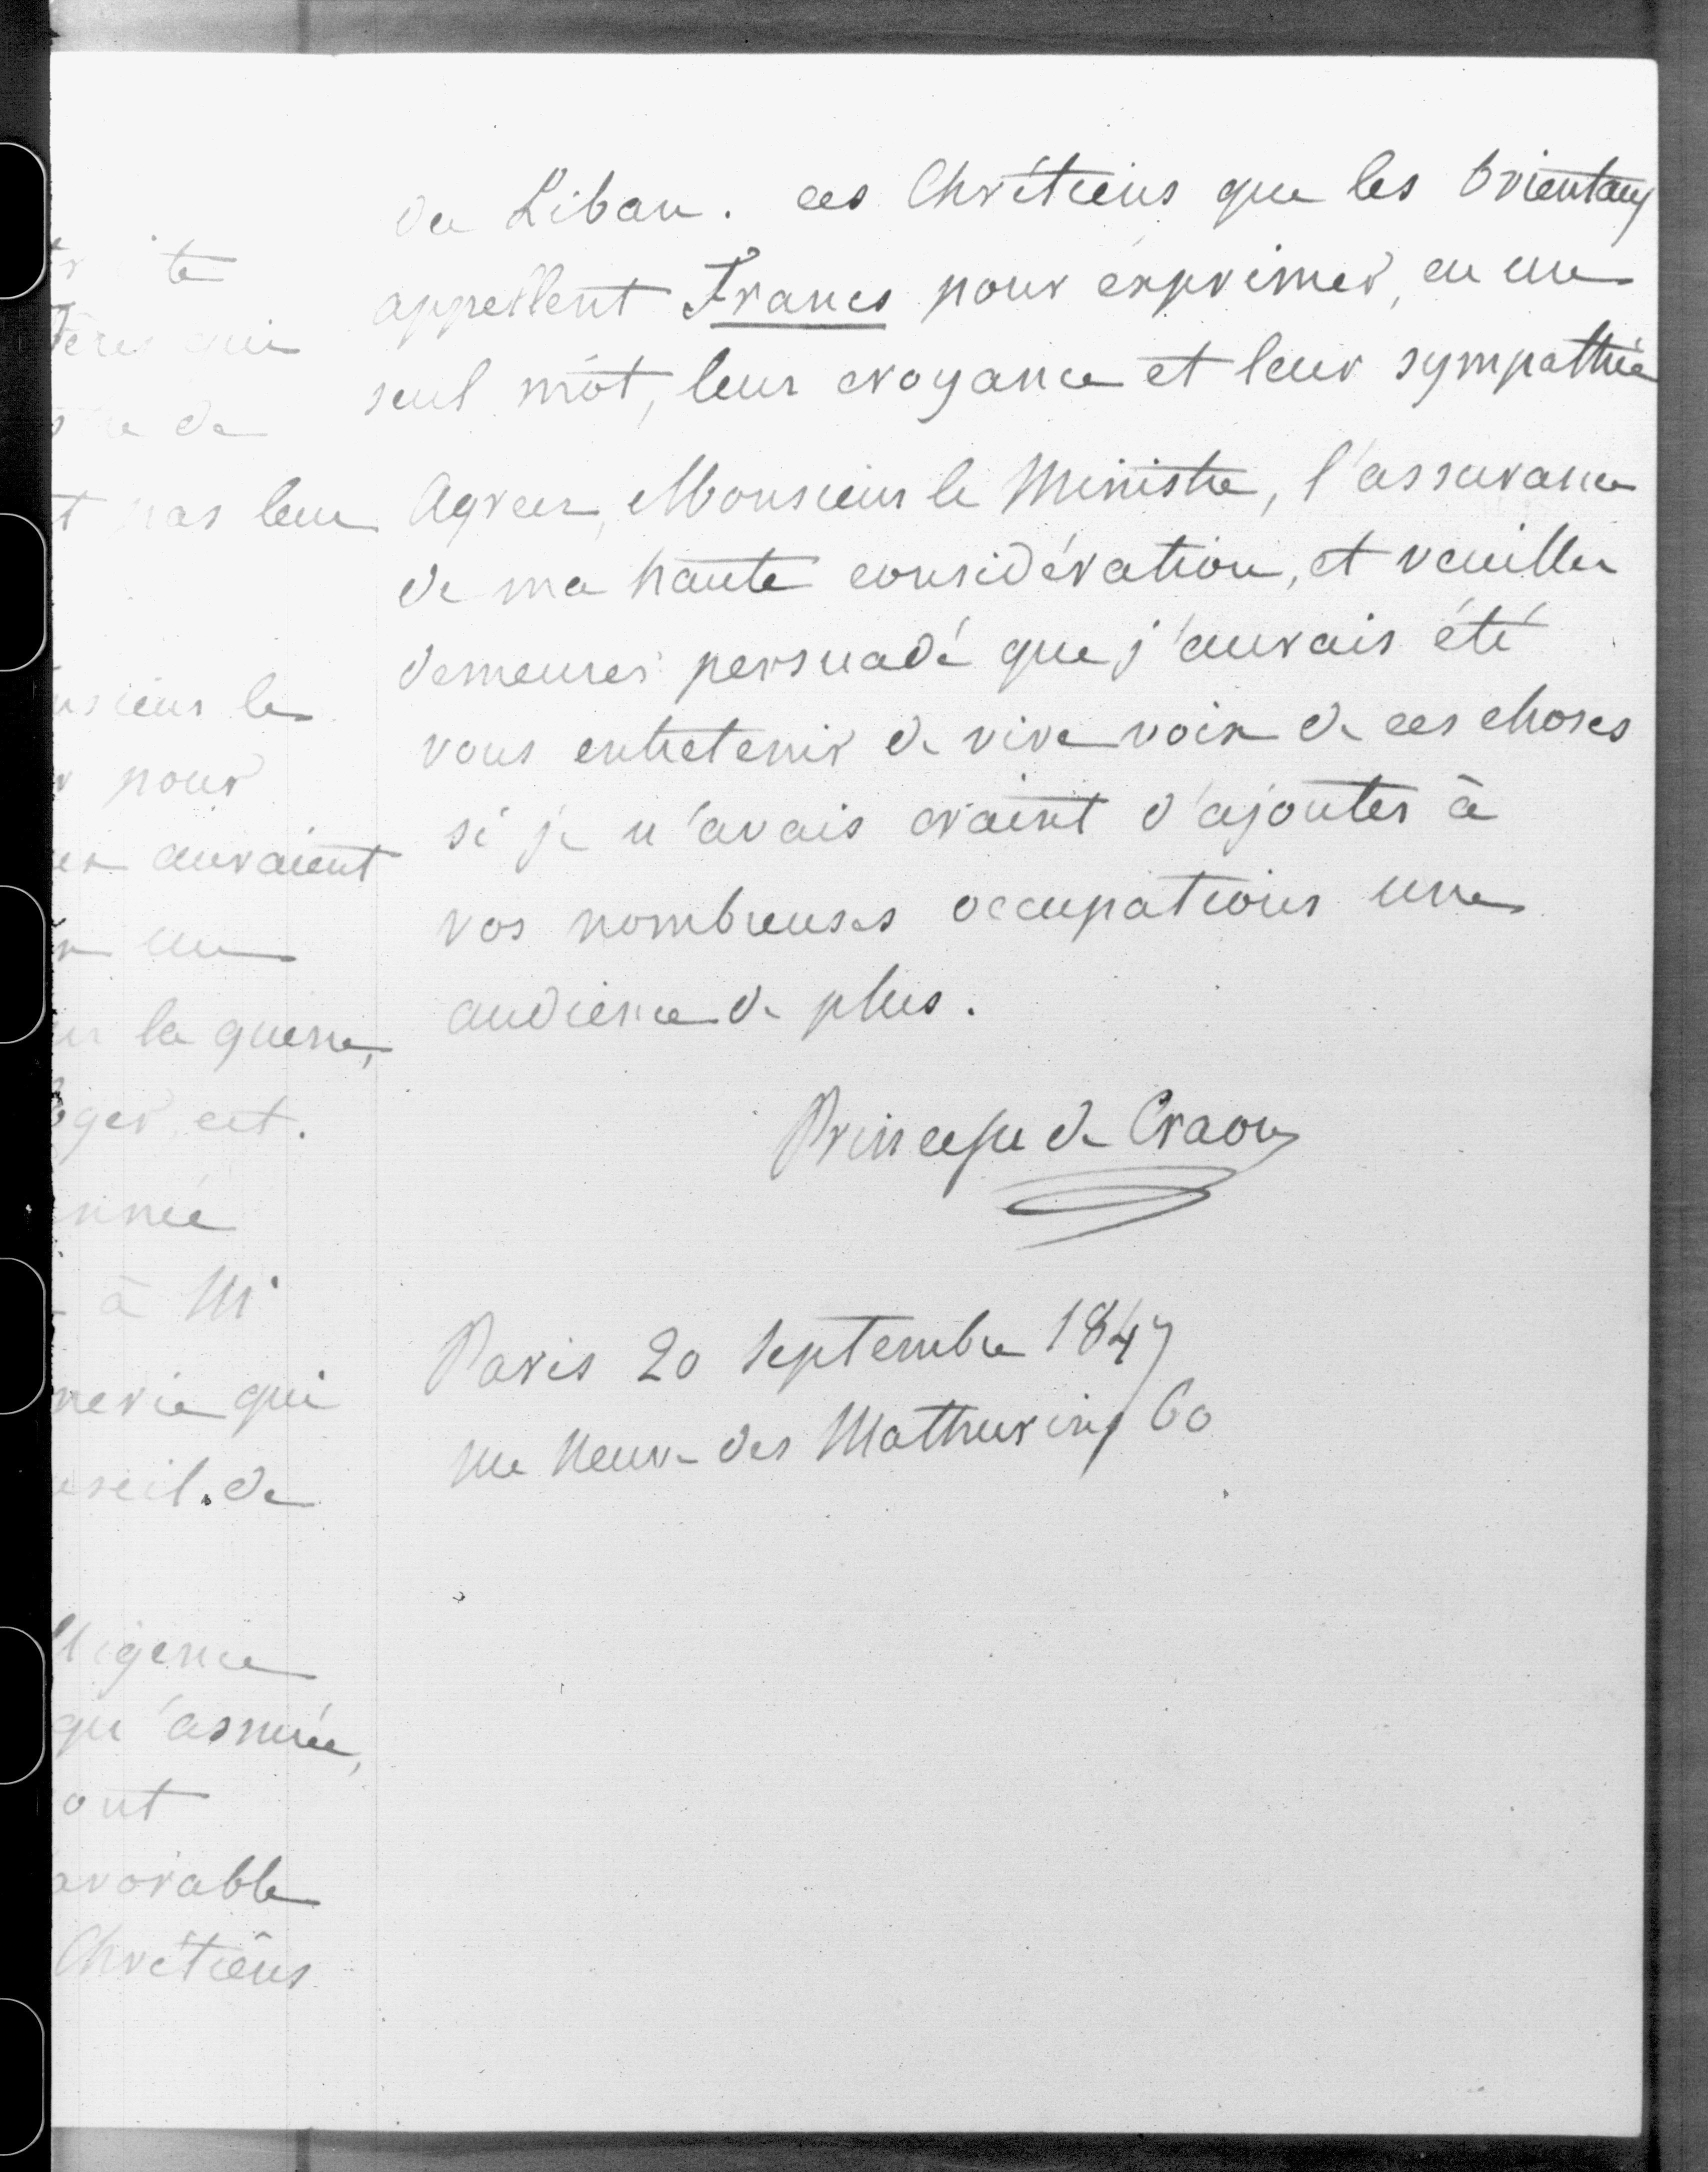 du Liban. ces Chrétiens que les Orientaux
appellent Francs pour exprimer, en un
seul mot, leur croyance et leur sympathie
Agréer, Monsieur le Ministre, l'assurance
de ma haute considération, et veuiller
demeurer persuadé que j'aurais été
vous entretenir de vive voix de ces choses
si je n'avais craint d'ajouter à
vos nombreuses occupations une
audience de plus.
Princesse de Craon
Paris 20 Septembre 1847
rue Neuve des Mathurins 60
te
qui
de
pas leur
le
pour
auraient
un
la guerre,
eut.
à Mr
qui
de
qu'assurée,
ont
Chrétiens